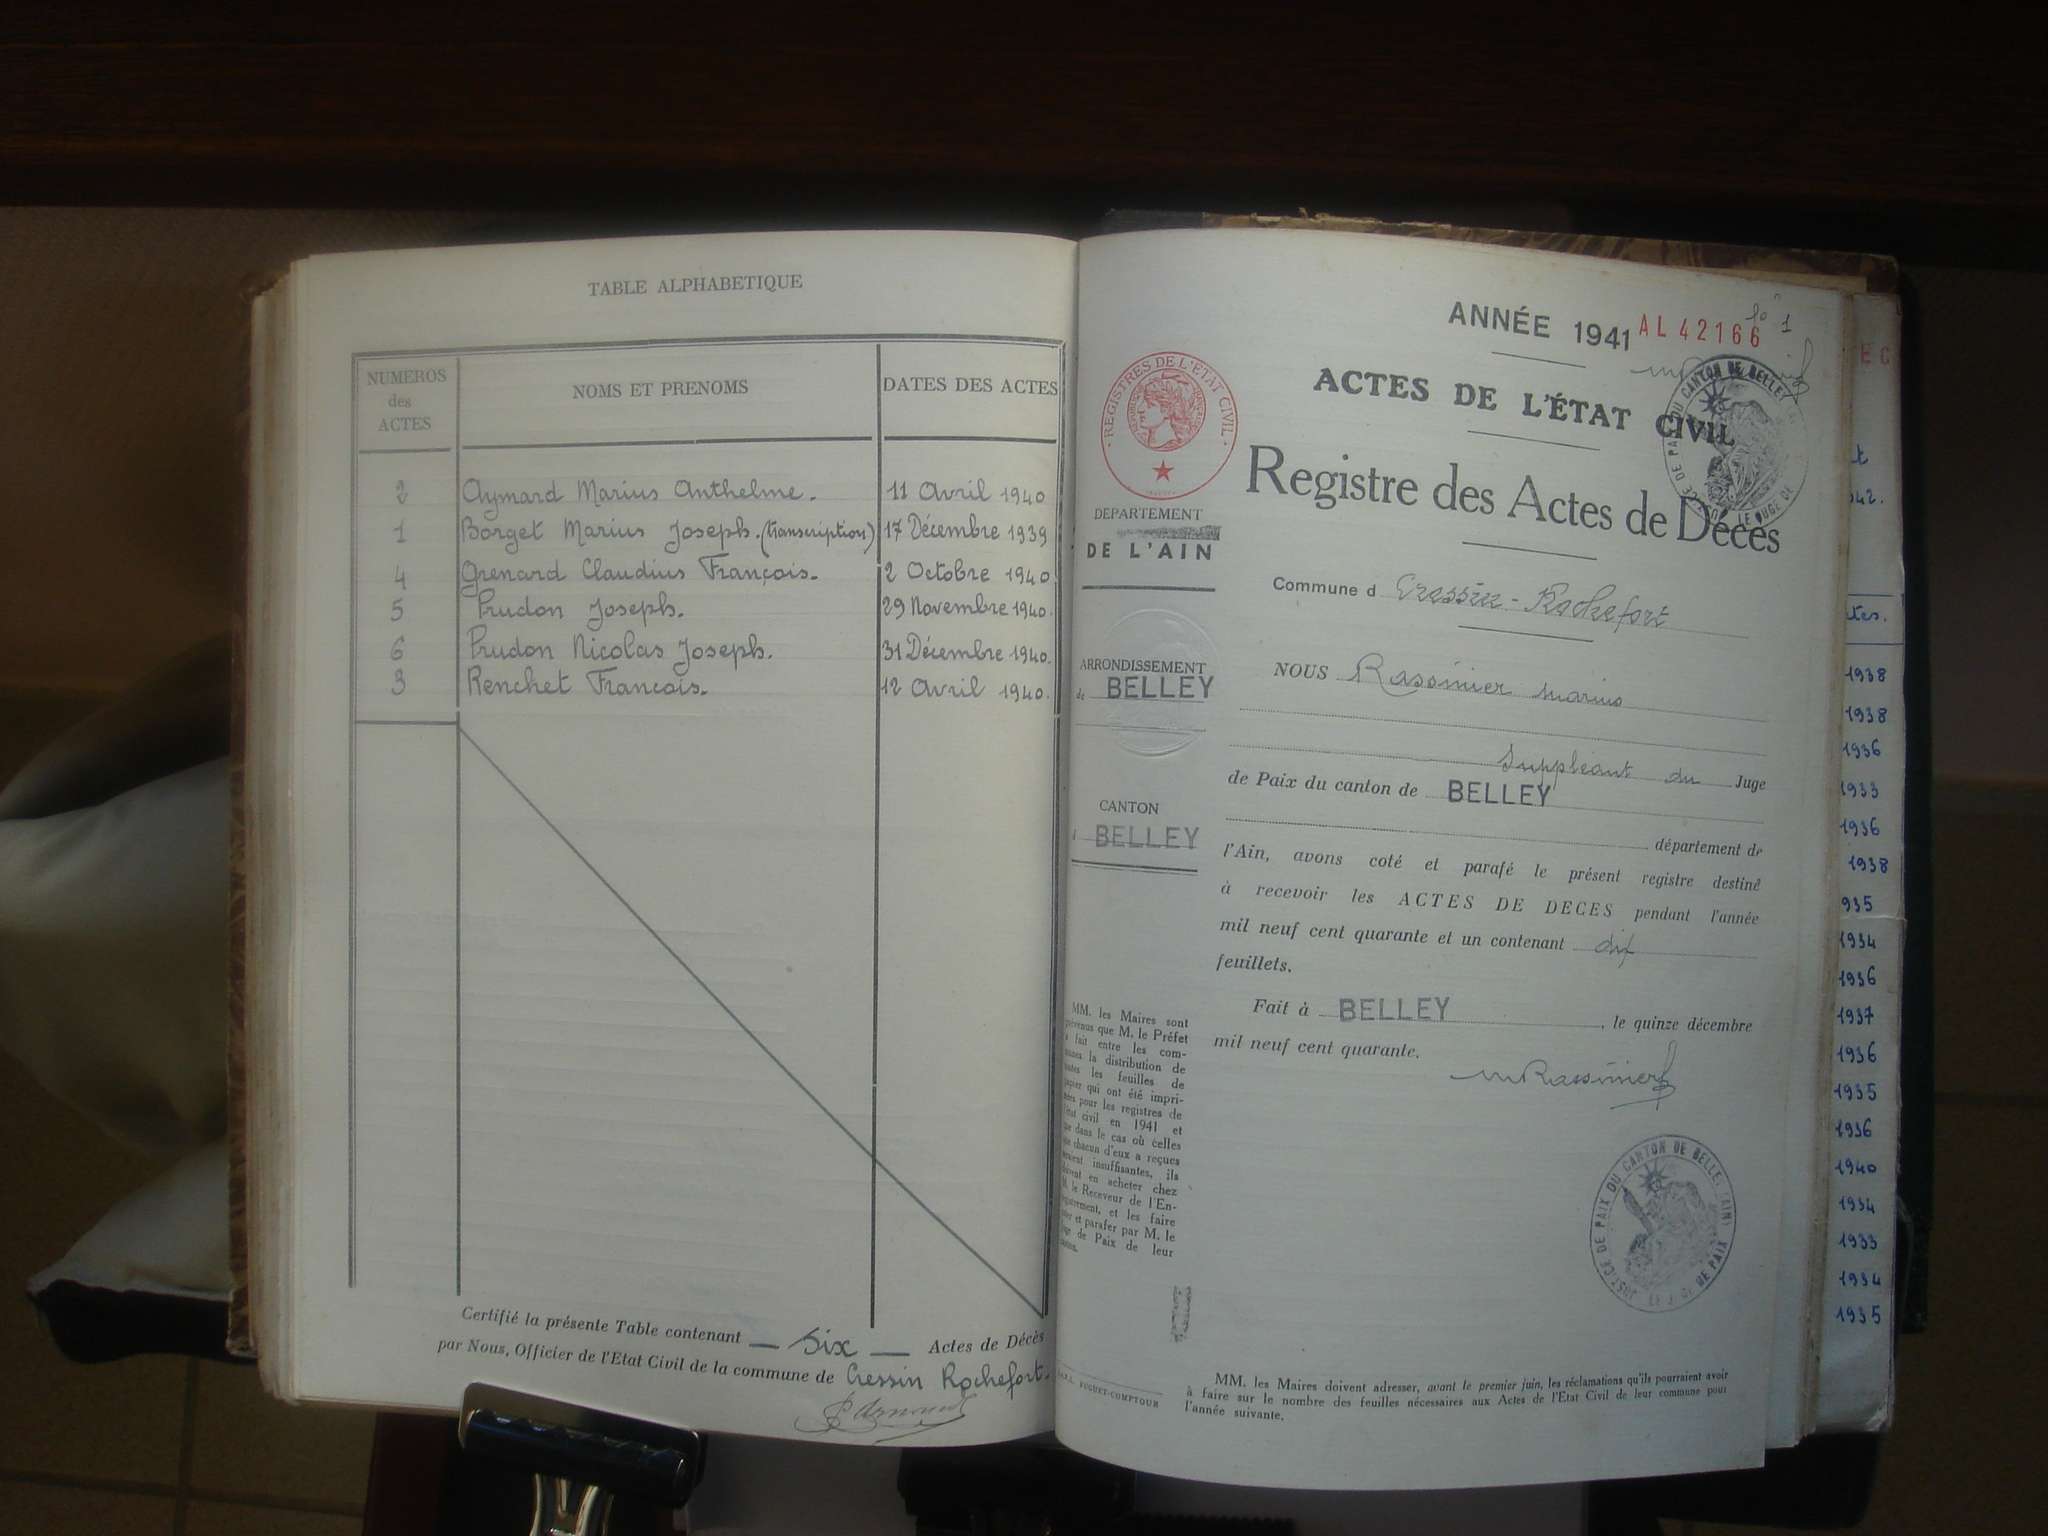 TABLE ALPHABETIQUE
NUMEROS
des
ACTES
NOMS ET PRENOMS
DATES DES ACTES
2 Aymard Marius Anthelme. 11 Avril 1940
1 Borget Marius Joseph. (transcription) 17 Décembre 1939
4 Grenard Claudius François. 2 Octobre 1940
5 Prudon Joseph. 29 Novembre 1940.
6 Prudon Nicolas Joseph. 31 Décembre 1940.
3 Renchet François. 12 Avril 1940.
Certifié la présente Table contenant Six Actes de Décès
par Nous, Officier de l'Etat Civil de la commune de Cressin Rochefort.
ANNÉE 1941 AL 42166
ACTES DE L'ÉTAT CIVIL
Registre des Actes de Décès
REGISTRES DE L'ETAT CIVIL
DEPARTEMENT
DE L'AIN
ARRONDISSEMENT
de BELLEY
CANTON
d BELLEY
Commune d Cressin-Rochefort
NOUS Rassinier Marius
Suppléant du Juge
de Paix du canton de BELLEY
département de
l'Ain, avons coté et parafé le présent registre destiné
à recevoir les ACTES DE DECES pendant l'année
mil neuf cent quarante et un contenant dix
feuillets.
Fait à BELLEY, le quinze décembre
mil neuf cent quarante.
MRassinier
MM. les Maires sont
prévenus que M. le Préfet
a fait entre les com-
munes la distribution de
toutes les feuilles de
papier qui ont été impri-
mées pour les registres de
l'état civil en 1941 et
que dans le cas où celles
que chacun d'eux a reçues
seraient insuffisantes, ils
doivent en acheter chez
M. le Receveur de l'En-
registrement, et les faire
coter et parafer par M. le
Juge de Paix de leur
canton.
JUSTICE DE PAIX DU CANTON DE BELLEY (AIN)
LE JUGE DE PAIX
MM. les Maires doivent adresser, avant le premier juin, les réclamations qu'ils pourraient avoir
à faire sur le nombre des feuilles nécessaires aux Actes de l'Etat Civil de leur commune pour
l'année suivante.
1938
1938
1936
1933
1936
1938
935
1934
1936
1937
1936
1935
1936
1940
1934
1933
1934
1935